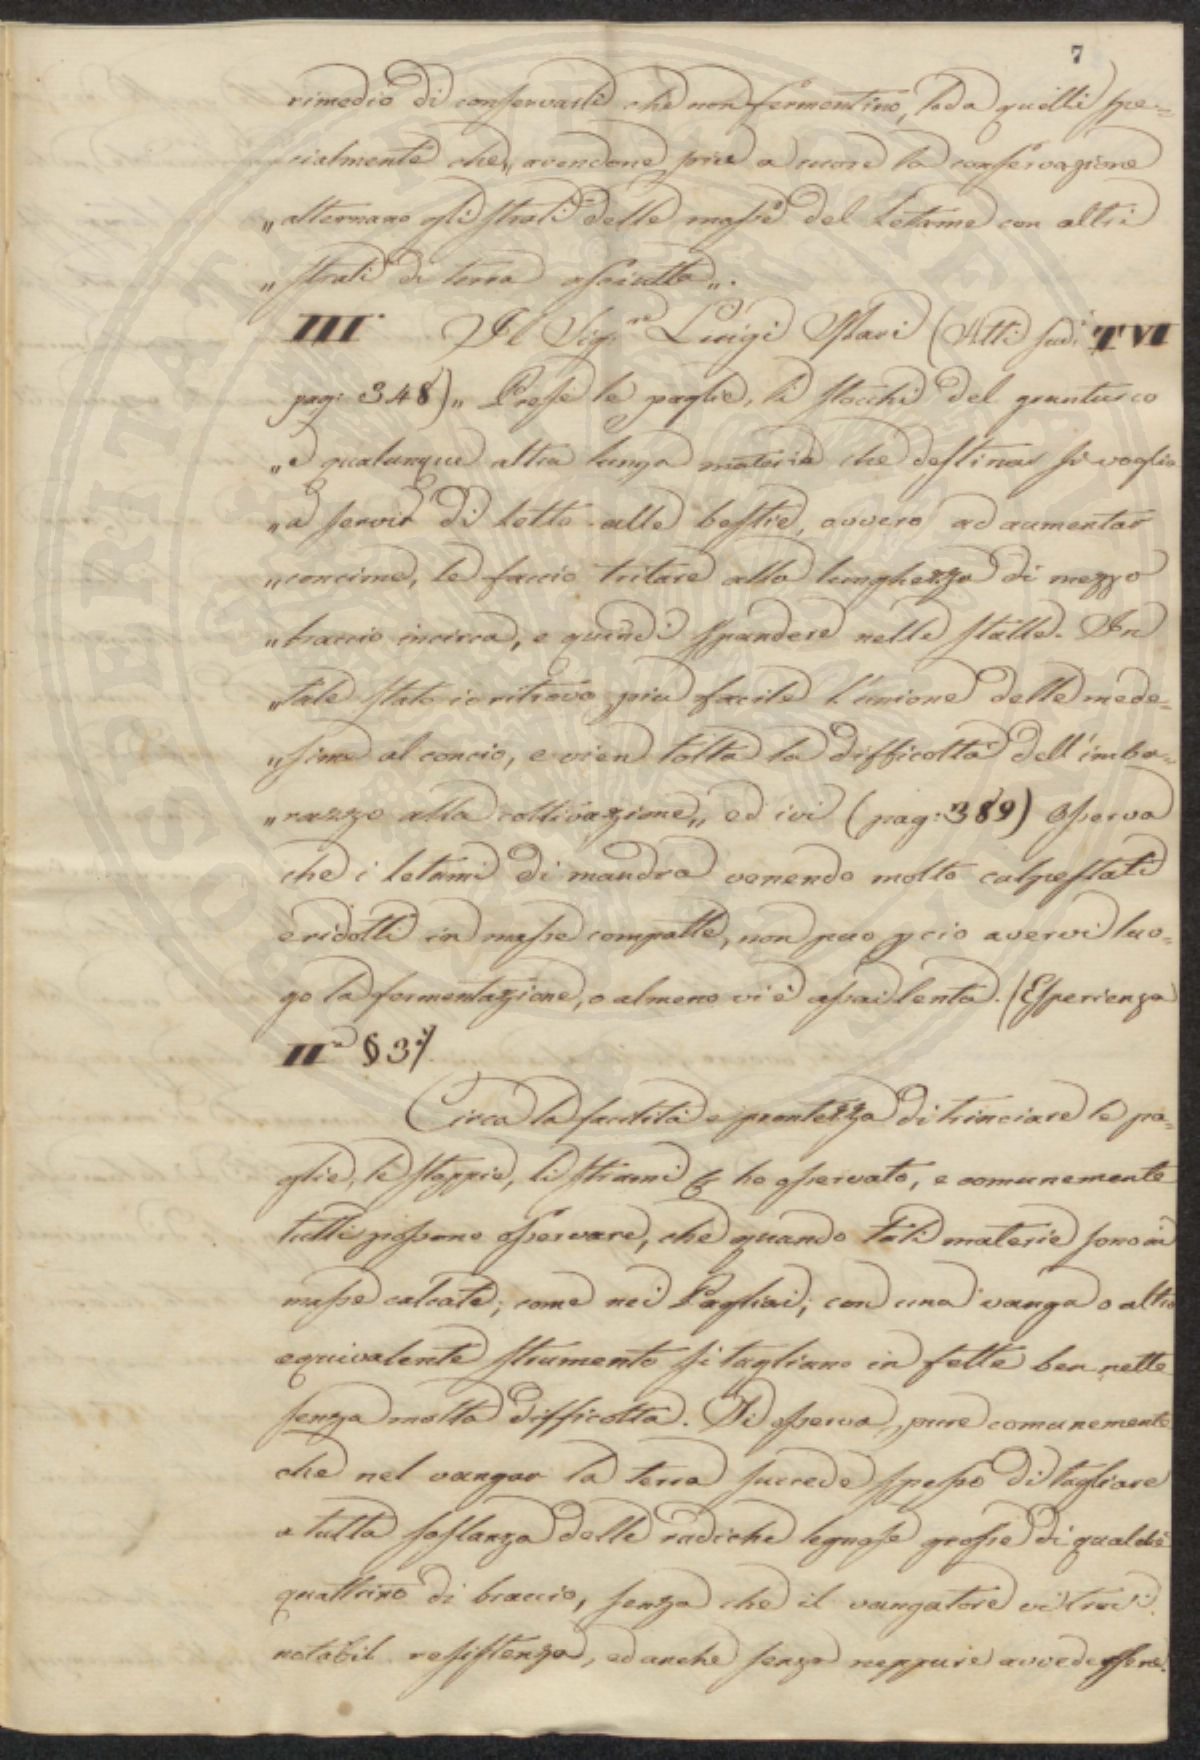 7
rimedio di conservarli che non fermentino, loda quelli spe=
cialmente che „ avendone più a cuore la conservazione
„ alternano gli strati delle masse del Letame con altri
„ strati di terra asciutta „.
III° Il Sig.re Luigi Mari (Atti sud.i T VI
pag: 348) „ Prese le paglie, li stocchi del granturco
„ e qualunque altra lunga materia che destinar si voglia
„ a servir di letto alle bestie, ovvero ad aumentar
„ concime, le faccio tritare alla lunghezza di mezzo
„ braccio incirca, e quindi spandere nelle stalle. In
„ tale stato io ritrovo più facile l'unione delle mede=
„ sime al concio, e vien tolta la difficoltà dell'imba=
„ razzo alla coltivazione „ ed ivi (pag: 389) osserva
che i letami di mandra venendo molto calpestati
e ridotti in masse compatte, non può p ciò avervi luo=
go la fermentazione, o almeno vi è assai lenta. (Esperienza
II.a § 3°)
Circa la facilità e prontezza di trinciare le pa=
glie, le stoppie, li strami & ho osservato, e comunemente
tutti possono osservare, che quando tali materie sono in
masse calcate; come nei Pagliai; con una vanga o altro
equivalente strumento si tagliano in fette ben nette
senza molta difficoltà. Si osserva, pure comunemente
che nel vangar la terra succede spesso di tagliare
a tutta sostanza delle radiche legnose grosse di qualche
quattrino di braccio, senza che il vangatore vi trovi
notabil resistenza, ed anche senza neppure avvedersene.